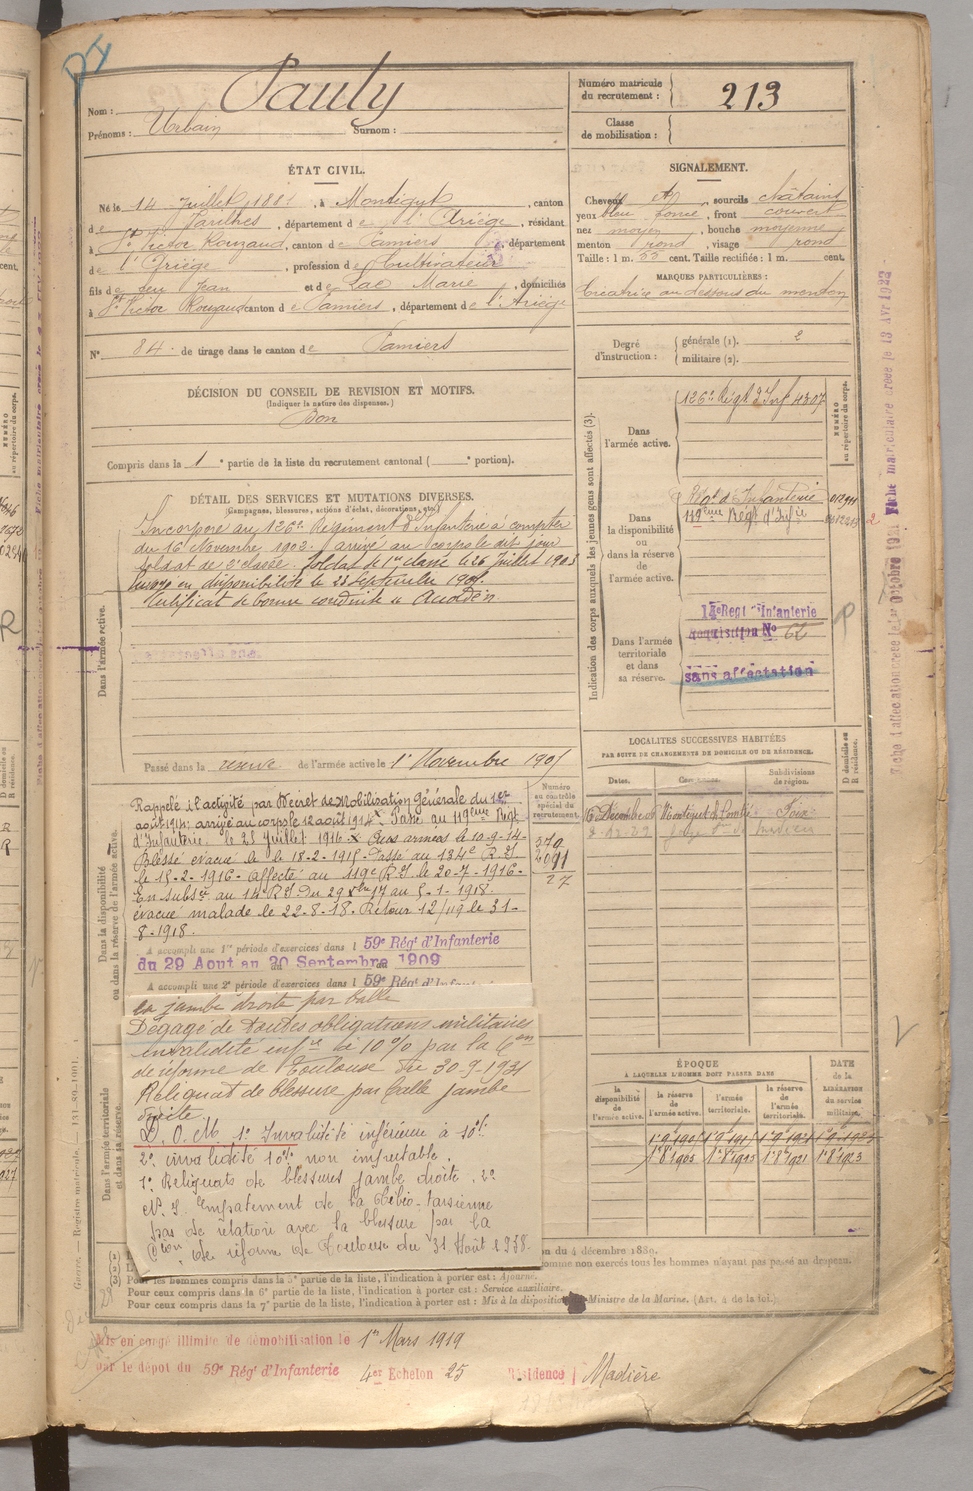 Nom : Pauly
Prénoms : Urbain Surnom :
Numéro matricule du recrutement : 213
Classe de mobilisation :
ÉTAT CIVIL.
Né le 14 Juillet 1881, à Montégut, canton
de Varilhes, département de l'Ariège, résidant
à St Victor Rouzaud, canton de Pamiers, département
de l'Ariège, profession de Cultivateur
fils de feu Jean et de Lac Marie, domiciliés
à St Victor Rouzaud canton de Pamiers, département de l'Ariège
N° 84 de tirage dans le canton de Pamiers
SIGNALEMENT.
Cheveux et, sourcils châtains
yeux bleu foncé, front couvert
nez moyen, bouche moyenne
menton rond, visage rond
Taille : 1 m. 55 cent. Taille rectifiée : 1 m. cent.
MARQUES PARTICULIÈRES :
Cicatrice au dessous du menton
Degré d'instruction : générale (1). 2
militaire (2).
DÉCISION DU CONSEIL DE REVISION ET MOTIFS.
(Indiquer la nature des dispenses.)
Bon
Compris dans la 1e partie de la liste du recrutement cantonal ( e portion).
DÉTAIL DES SERVICES ET MUTATIONS DIVERSES.
(Campagnes, blessures, actions d'éclat, décorations, etc.)
Incorporé au 126e Régiment d'Infanterie à compter
du 16 Novembre 1902. arrivé au corps le dit jour
soldat de 2e classe. Soldat de 1re classe le 26 Juillet 1903
Envoyé en disponibilité le 23 septembre 1905.
Certificat de bonne conduite "Accordé".
Dans l'armée active.
Passé dans la réserve de l'armée active le 1er Novembre 1905
Indication des corps auxquels les jeunes gens sont affectés (3).
NUMÉRO au répertoire du corps.
Dans l'armée active.
126e Régt d'Inf. 4307
Dans la disponibilité ou dans la réserve de l'armée active.
Régt d'Infanterie 012911
119ème Régt d'Infie
Dans l'armée territoriale et dans sa réserve.
14e Regt d'Infanterie
Requisition No 62
sans affectation
Dans la disponibilité ou dans la réserve de l'armée active.
Rappelé à l'activité par Décret de Mobilisation Générale du 1er
août 1914; arrivé au corps le 12 août 1914 x Passé au 119ème Régt
d'Infanterie le 25 Juillet 1916 x Aux armées le 10-9-14.
Blessé évacué le 18-2-1915. Passé au 134e R.I.
le 15-2-1916. affecté au 119e R.I. le 20-7-1916.
En subsce au 14e R.I. Du 29 Xbre 17 au 5-1-1918.
évacué malade le 22-8-18. Retour 12/119 le 31-
8-1918.
Numéro au contrôle spécial du recrutement.
570
2091
27
A accompli une 1re période d'exercices dans l 59e Régt d'Infanterie
du 29 Aout au 20 Septembre 1909
A accompli une 2e période d'exercices dans l 59e Régt d'Infanterie
la jambe droite par balle
Dégagé de toutes obligations militaires
invalidité infre à 10% par la Con
de réforme de Toulouse du 30-9-1931
Reliquat de blessure par balle jambe
droite
D. O. M. 1° Invalidité inférieure à 10%
2° invalidité 10% non imputable.
1° Reliquats de blessures jambe droite. 2°
N. I. Empatement de la tibio-tarsienne
pas de relation avec la blessure par la
Cion de réforme de Toulouse du 31 Août 1938.
Dans l'armée territoriale et dans sa réserve.
LOCALITÉS SUCCESSIVES HABITÉES
PAR SUITE DE CHANGEMENTS DE DOMICILE OU DE RÉSIDENCE.
Dates. Communes. Subdivisions de région. D domicile ou R résidence.
Foix
ÉPOQUE
A LAQUELLE L'HOMME DOIT PASSER DANS
la disponibilité de l'armée active. la réserve de l'armée active. l'armée territoriale. la réserve de l'armée territoriale.
DATE de la LIBÉRATION du service militaire.
1er 8bre 1905 1er 8bre 1915 1er 8bre 1921 1er 8bre 1923
du 4 décembre 1889.
comme non exercés tous les hommes n'ayant pas passé au drapeau.
Pour les hommes compris dans la 5e partie de la liste, l'indication à porter est : Ajourné.
Pour ceux compris dans la 6e partie de la liste, l'indication à porter est : Service auxiliaire.
Pour ceux compris dans la 7e partie de la liste, l'indication à porter est : Mis à la disposition du Ministre de la Marine. (Art. 4 de la loi.)
Mis en congé illimité de démobilisation le 1er Mars 1919
par le dépôt du 59e Régt d'Infanterie 4er Echelon 25 Résidence Madière